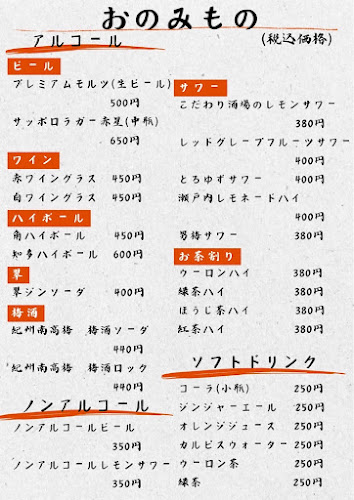 おのみもの
(税込価格)
アルコール
ビール
プレミアムモルツ(生ビール)
500円
サッポロラガー赤星(中瓶)
650円
ワイン
赤ワイングラス 450円
白ワイングラス 450円
ハイボール
角ハイボール 450円
知多ハイボール 600円
翠
翠ジンソーダ 400円
梅酒
紀州南高梅 梅酒ソーダ
440円
紀州南高梅 梅酒ロック
440円
ノンアルコール
ノンアルコールビール
350円
ノンアルコールレモンサワー
350円
サワー
こだわり酒場のレモンサワー
380円
レッドグレープフルーツサワー
400円
とろゆずサワー 400円
瀬戸内レモネードハイ
400円
男梅サワー 380円
お茶割り
ウーロンハイ 380円
緑茶ハイ 380円
ほうじ茶ハイ 380円
紅茶ハイ 380円
ソフトドリンク
コーラ(小瓶) 250円
ジンジャーエール 250円
オレンジジュース 250円
カルピスウォーター 250円
ウーロン茶 250円
緑茶 250円